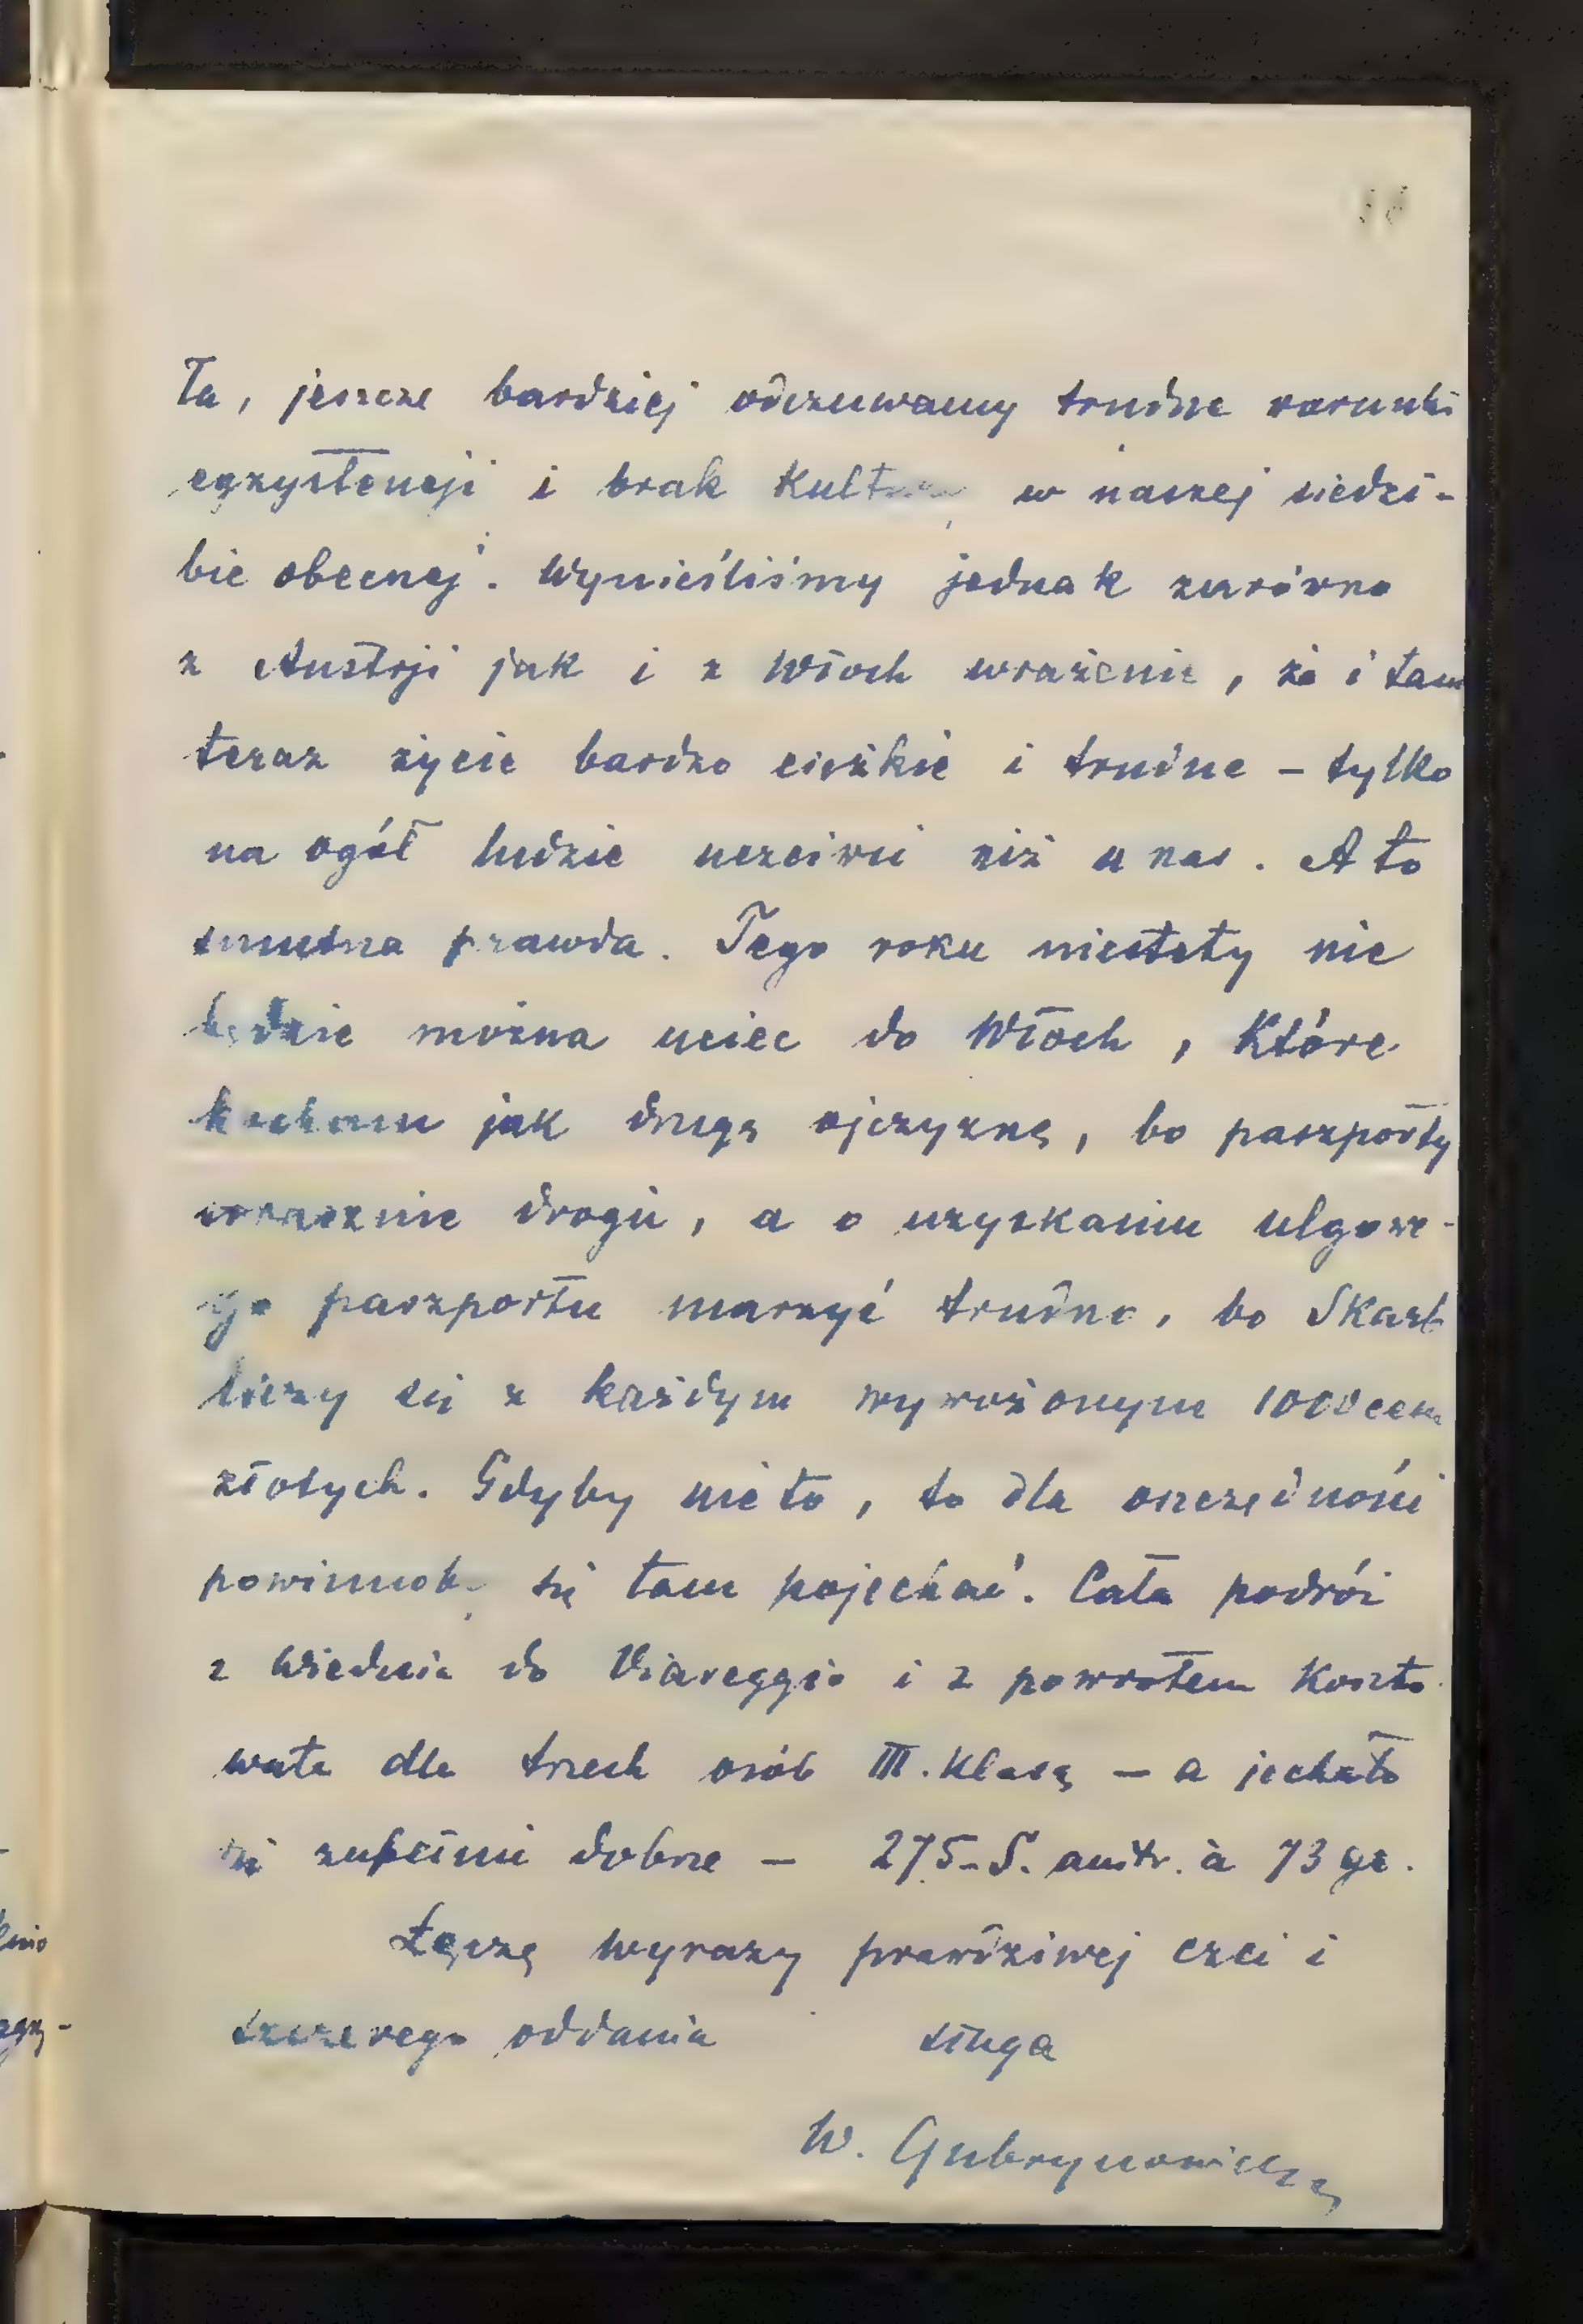 Tu, jeszcze bardziej odczuwamy trudne warunki
egzystencji i brak kultury w naszej siedzi-
bie obecnej. Wynieśliśmy jednak zarówno
z Austrji jak i z Włoch wrażenie, że i tam
teraz życie bardzo ciężkie i trudne – tylko
na ogół ludzie uczciwsi niż u nas. A to
smutna prawda. Tego roku niestety nie
będzie można uciec do Włoch, które
kocham jak drugą ojczyznę, bo paszporty
strasznie drogie, a o uzyskaniu ulgowe-
go paszportu marzyć trudno, bo Skarb
liczy się z każdym wywożonym 1000cem
złotych. Gdyby nie to, to dla oszczędności
powinnoby się tam pojechać. Cała podróż
z Wiednia do Viareggio i z powrotem koszto
wała dla trzech osób III. klasą – a jechało
się zupełnie dobrze – 275.– S. austr. à 73 gr.
Łączę wyrazy prawdziwej czci i
szczerego oddania sługa
W. Gubrynowicz